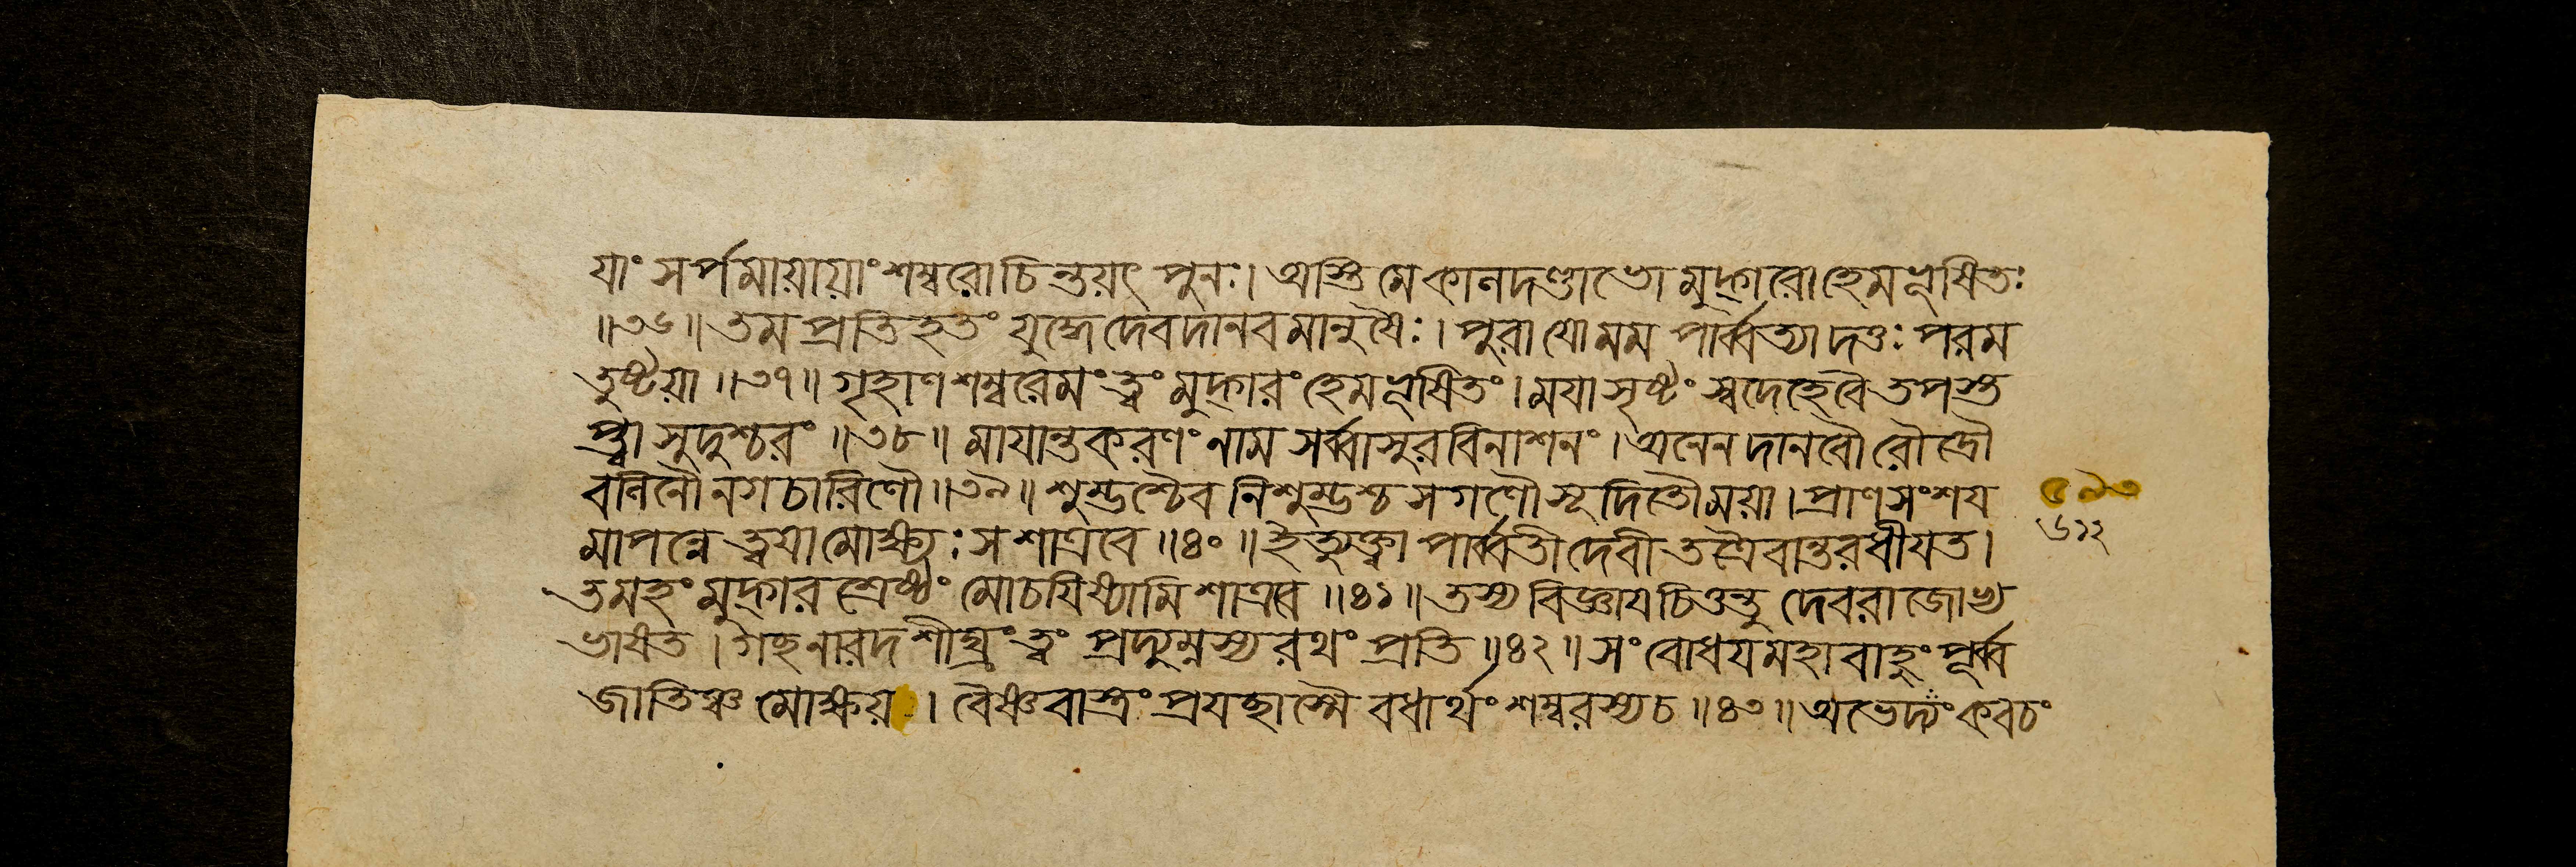 যাং সর্পমায়ায়াং শম্বরোচিন্তয়ৎ পুনঃ। অস্তি মে কালদণ্ডাভো মুদ্গরো হেমভূষিতঃ
॥৩৬॥ তমপ্রতিহতং যুদ্ধে দেবদানবমানুষৈঃ। পুরা যো মম পার্ব্বত্যা দত্তঃ পরম
তুষ্টয়া॥৩৭॥ গৃহাণ শম্বরেমং ত্বং মুদ্গরং হেমভূষিতং। ময়া সৃষ্টং স্বদেহে বৈ তপস্ত
প্ত্বা সুদুশ্চরং॥৩৮॥ মাযান্তকরণং নাম সর্ব্বাসুরবিনাশনং। অনেন দানবৌ রৌদ্রৌ
বলিনৌ নগচারিণৌ॥৩৯॥ শুম্ভশ্চৈব নিশুম্ভশ্চ সগণৌ সূদিতৌ ময়া। প্রাণসংশয
মাপন্নে ত্বযা মোক্ষ্যঃ স শাত্রবে॥৪০॥ ইত্যুক্ত্বা পার্ব্বতী দেবী তত্রৈবান্তরধীযত।
তমহং মুদ্গরশ্রেষ্ঠং মোচযিষ্যামি শাত্রবে॥৪১॥ তস্য বিজ্ঞায চিত্তন্তু দেবরাজোভ্য
ভাষত। গচ্ছ নারদ শীঘ্রং ত্বং প্রদ্যুম্নস্য রথং প্রতি॥৪২॥ সংবোধয মহাবাহুং পূর্ব্ব
জাতিঞ্চ মোক্ষয়। বৈষ্ণবাস্ত্রং প্রযচ্ছাস্মৈ বধার্থং শম্বরস্য চ॥৪৩॥ অভেদ্যং কবচং
৫৯৩
৬১২